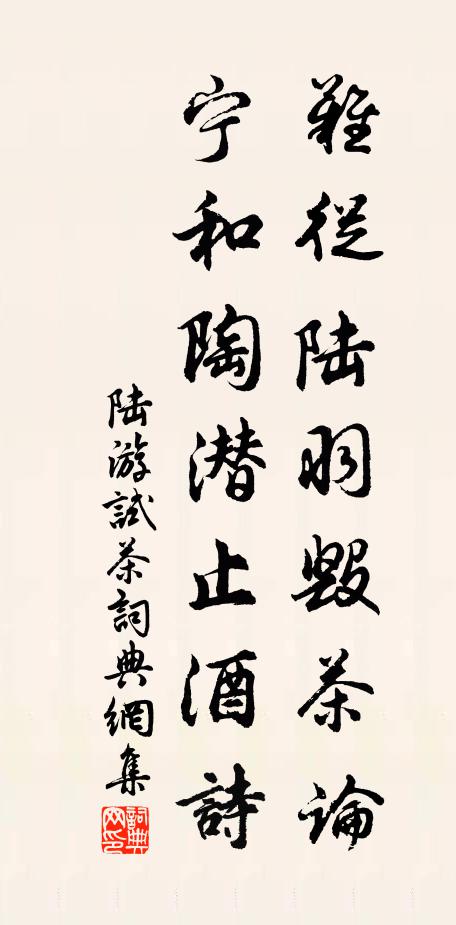 難從陆羽毀茶論
宁和陶潛止酒詩
陆游試茶詞典網集
詞典
网印